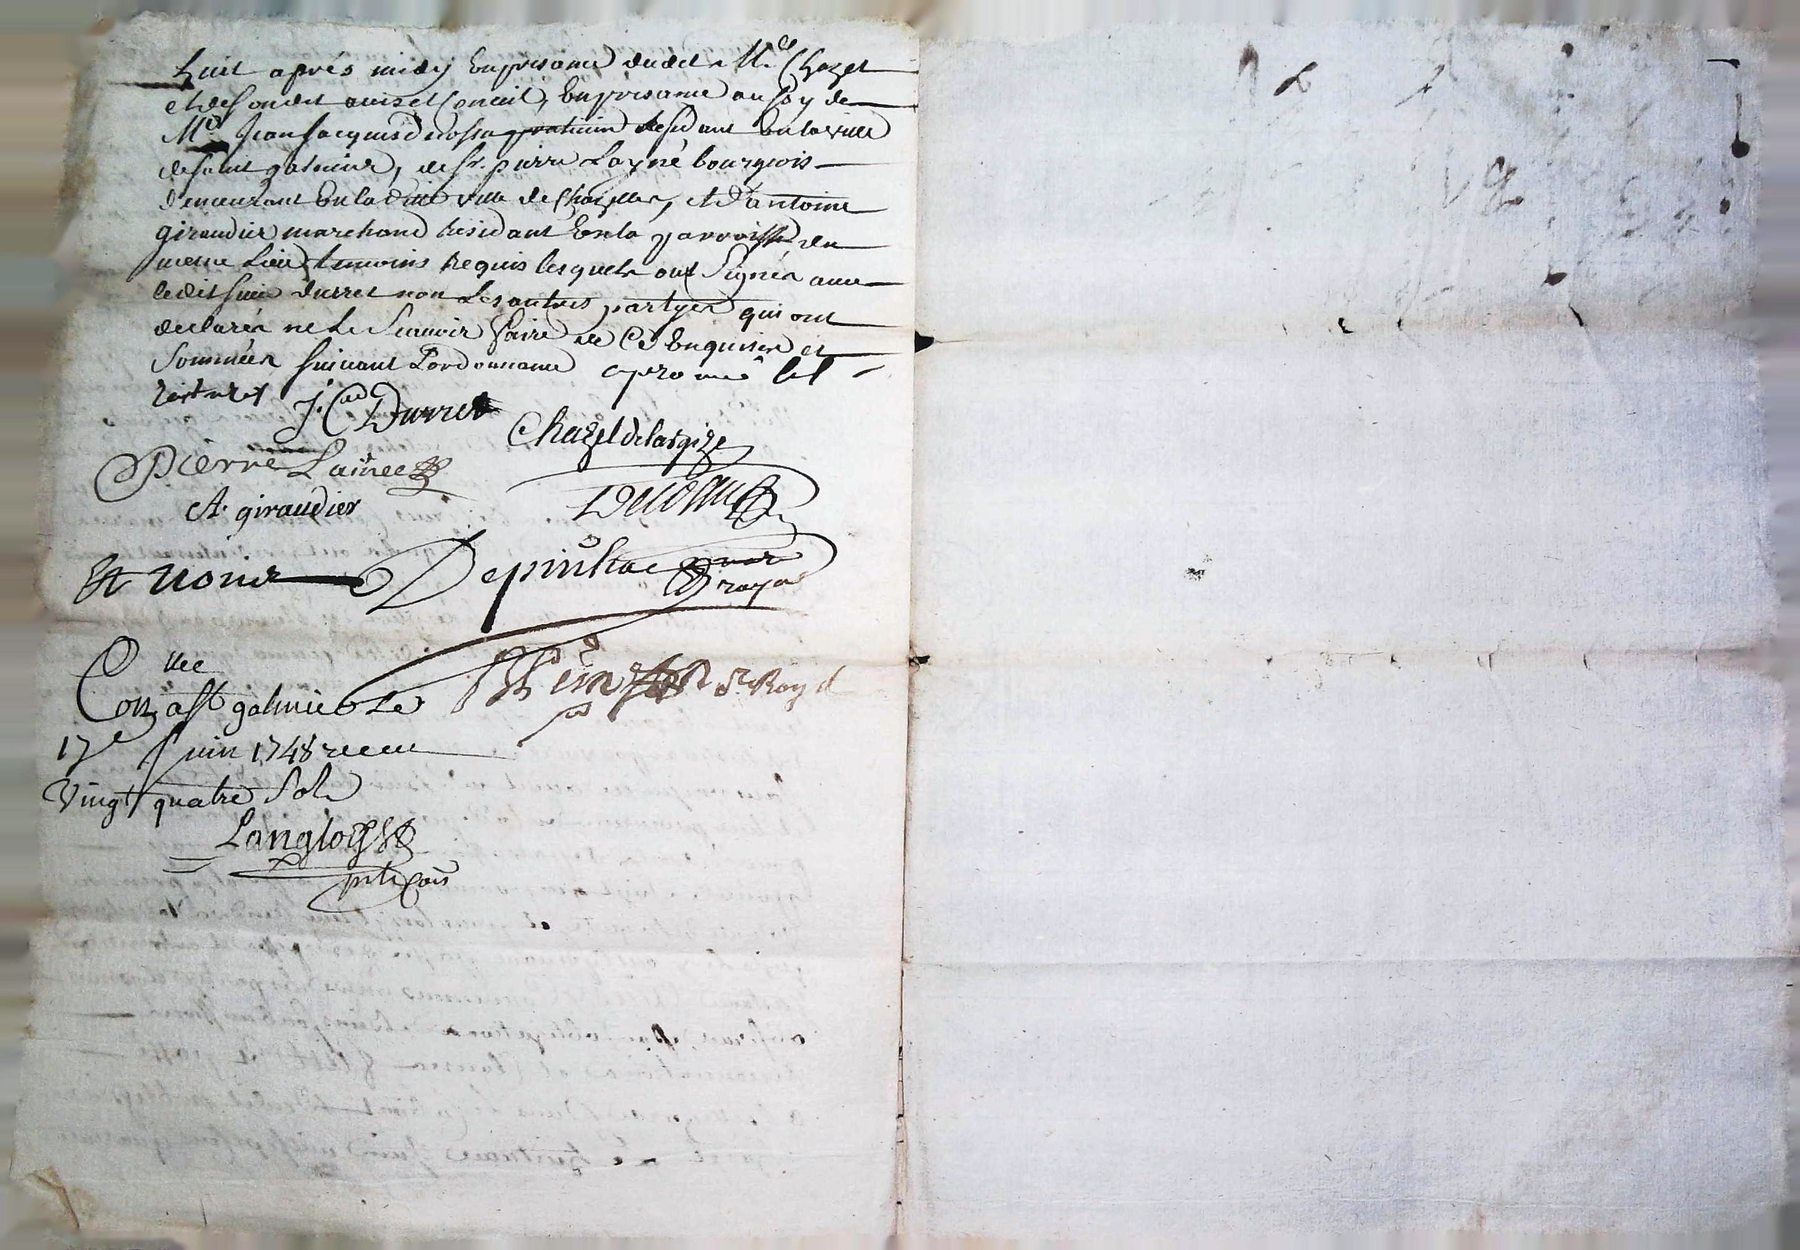 huit aprés midy En presance dudit Me Chazel
et de son dit avis et Conseil, En presance aussy de
Me Jean Jacques praticien Residant En la ville
de saint galmier, de sr. pierre Laynè bourgeois
demeurant En la ditte ville de Chazelles, et d'antoine
giraudier marchand Residant En la parroisse du
mesme Lieu temoins Requis lesquels ont signés avec
ledit sieur durret non Les autres partyes qui ont
declarés ne le scauoir faire de Ce Enquises et
sommées suivant L'ordonnance
J. Durret
Chazel
Pierre Lainee
A. giraudier
Et
royal
Conlle
a st galmier Le
17e Juin 1748 receu
Vingt quatre sols
Langlois